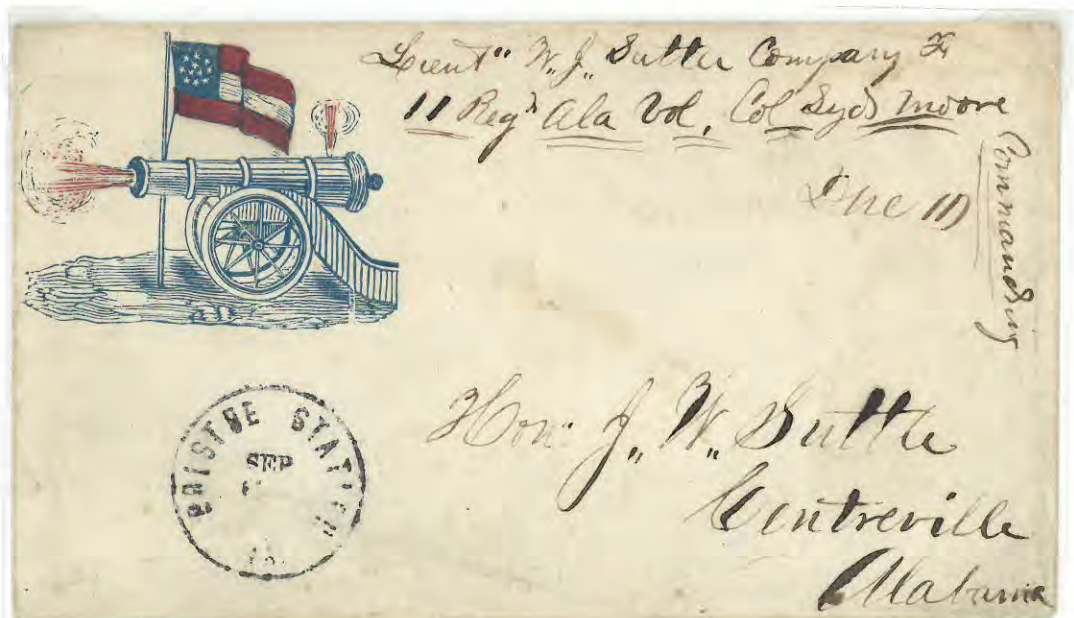 Lieut" W. J. Suttle Company F
11 Reg't Ala Vol, Col Syd Moore
Commanding
Due 10
BRISTOE STATION
SEP
VA.
Hon. J. W. Suttle
Centreville
Alabama